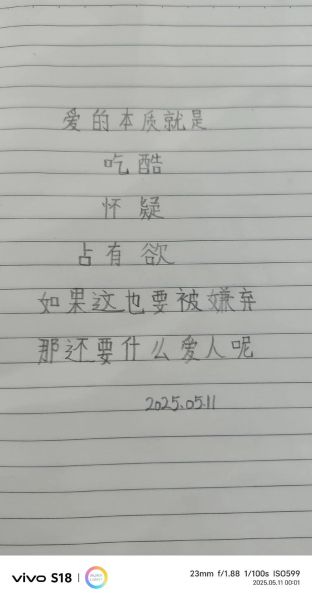 爱的本质就是
吃酷
怀疑
占有欲
如果这也要被嫌弃
那还要什么爱人呢
2025.05.11
vivo S18
23mm f/1.88 1/100s ISO599
2025.05.11 00:01